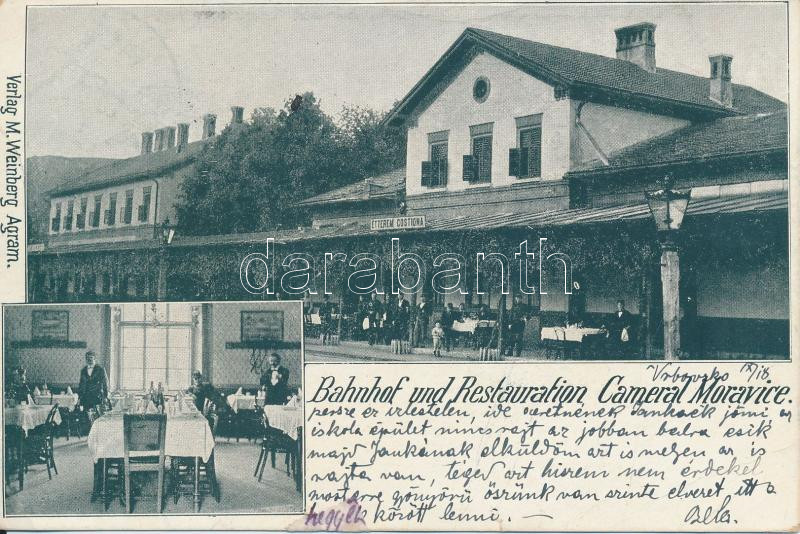 Verlag M. Weinberg Agram.
ÉTTEREM GOSTIONA
darabanth.com
Bahnhof und Restauration Cameral Moravice.
Vrbovsko IX/18
persze ez izlestelen, ide szeretnének Jankáék jönni, az
iskola épület nincs rajt az jobban balra esik
majd Jankának elküldöm azt is melyen az is
rajta van, téged azt hiszem nem érdekel
mostanra gyönyörű őszünk van szinte élvezet, itt a
hegyek között lenni. —
Bela